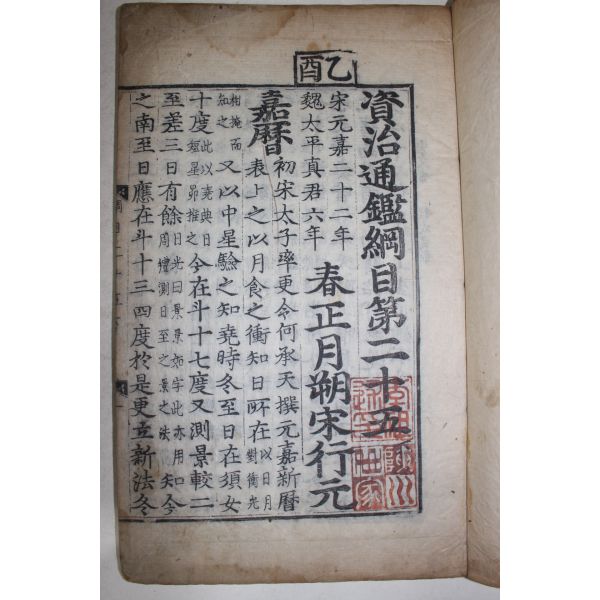 乙酉
資治通鑑綱目第二十五
宋元嘉二十二年
魏太平真君六年
春正月朔宋行元
嘉曆
初宋太子率更令何承天撰元嘉新曆
表上之以月食之衝知日所在以日月對衝光
相掩而知之又以中星驗之知堯時冬至日在須女
十度此以堯典日短星昴推之今在斗十七度又測景較二
至差三日有餘日光曰景景字此亦用周禮測日至之景之法知今
之南至日應在斗十三四度於是更立新法冬